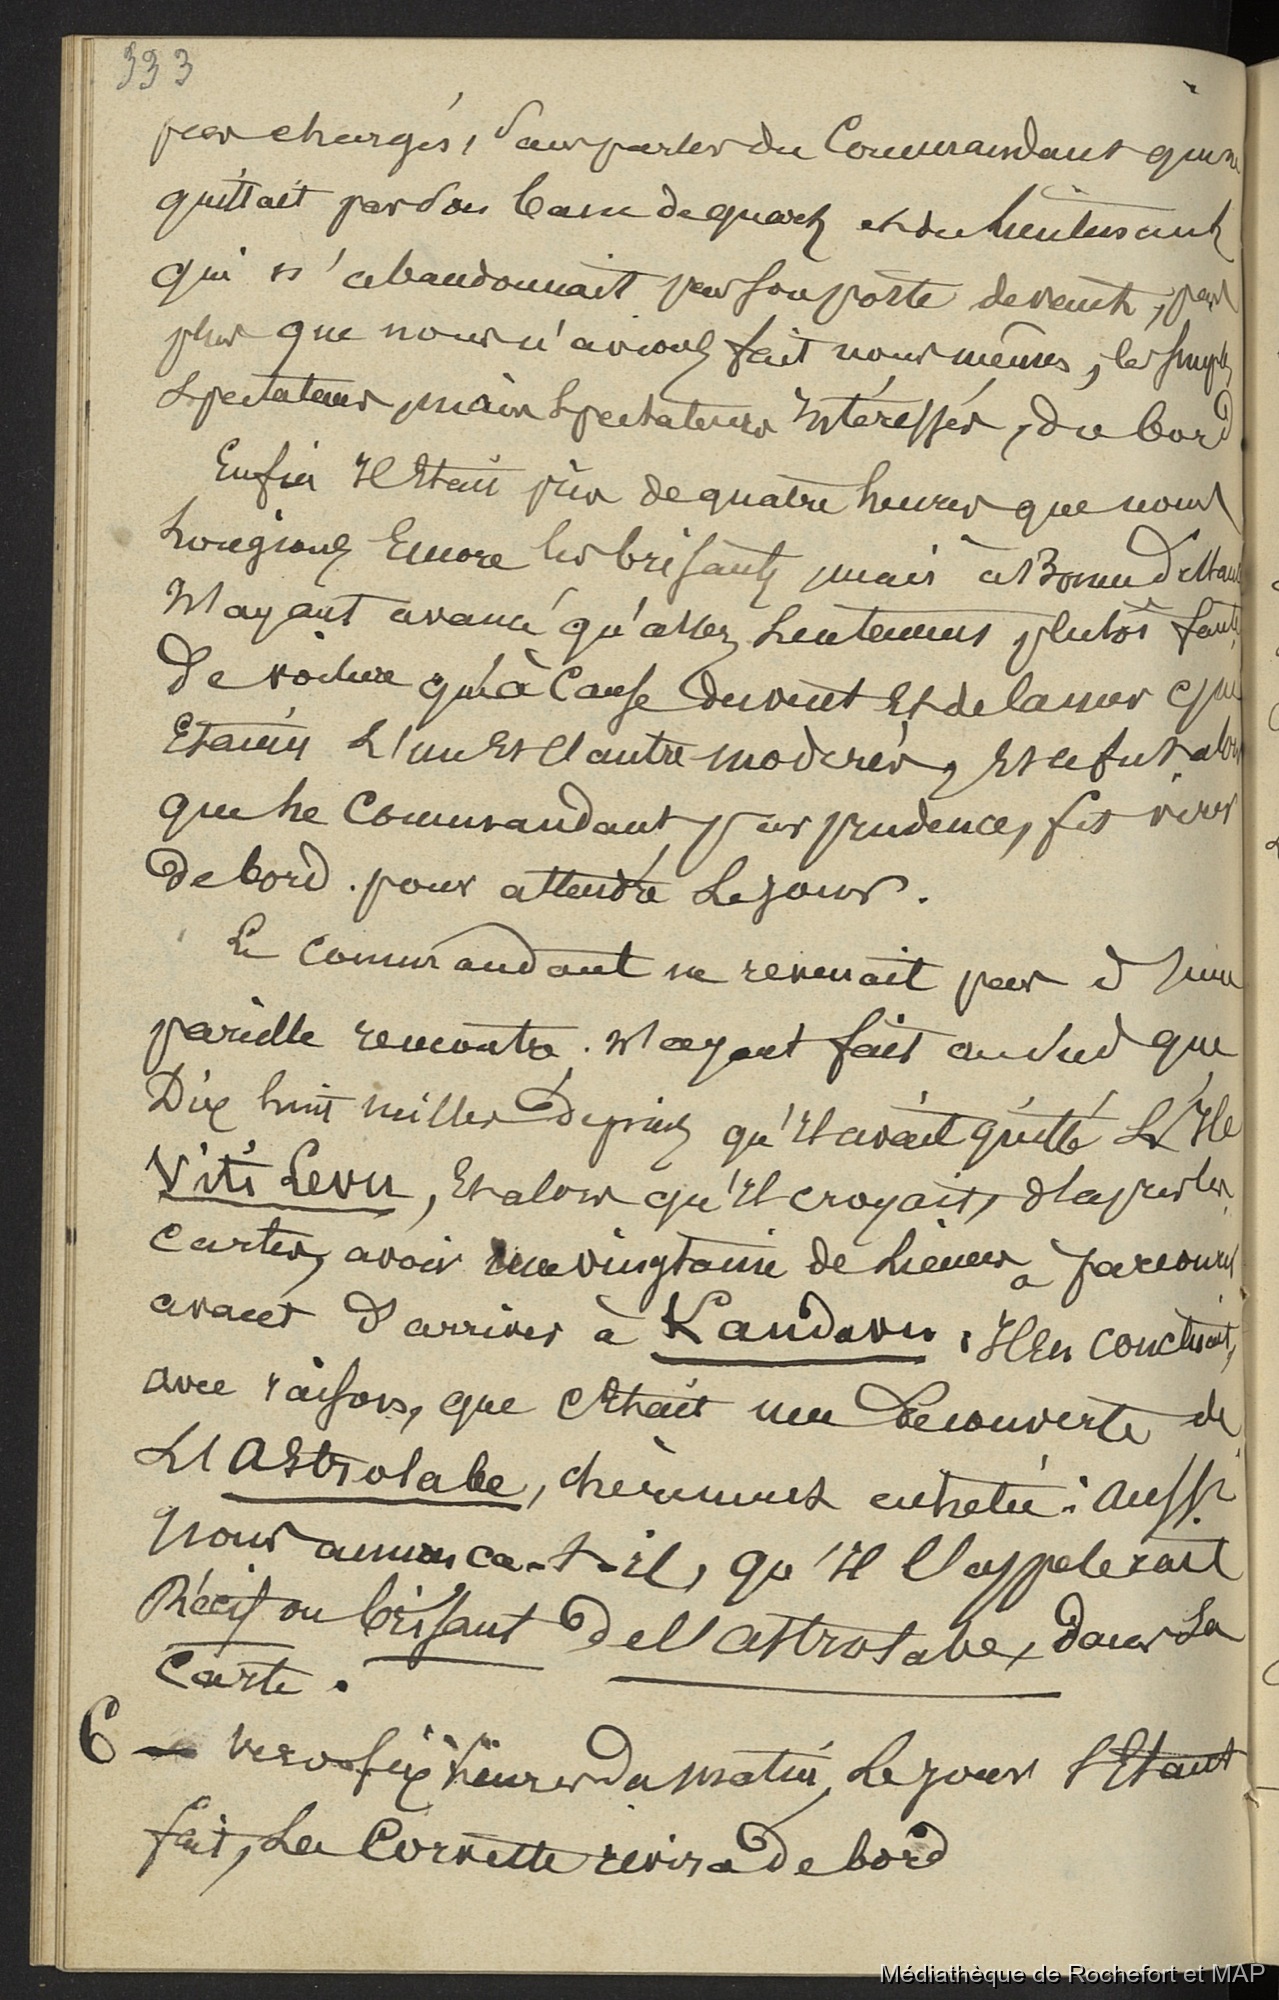 333
pas chargés, sans parler du Commandant qui ne
quittait pas son banc de quart et du Lieutenant
qui n'abandonnait pas son poste devant, pas
plus que nous n'avions fait nous mêmes, les simples
spectateurs, mais spectateurs intéressés, du bord
Enfin il était près de quatre heures que nous
Longions Encore les brisants, mais à Bonne distance
N'ayant avancé qu'assez Lentement plutôt faute
De voilure qu'à Cause du vent Et de la mer qui
Etaient L'un Et l'autre modérés, Et ce fut alors
que Le Commandant, par prudence, fit virer
de bord. pour attendre Le jour.
Le Commandant ne revenait pas d'une
pareille rencontre. N'ayant fait au Sud que
Dix huit milles Depuis qu'il avait quitté L'Ile
Viti Levu, Et alors qu'il croyait, d'après les
Cartes, avoir une vingtaine de Lieues à parcourir
avant D'arriver à Kandavu. Il En concluait,
avec raison, que c'Etait une Découverte de
L'Astrolabe, chèrement achetée: Aussi
nous annonça-t-il, qu'il l'appelerait
Récif ou brisant De l'Astrolabe, dans La
Carte.
6 — Vers six heures Du matin, Le jour s'Etant
fait, La Corvette revira De bord
Médiathèque de Rochefort et MAP